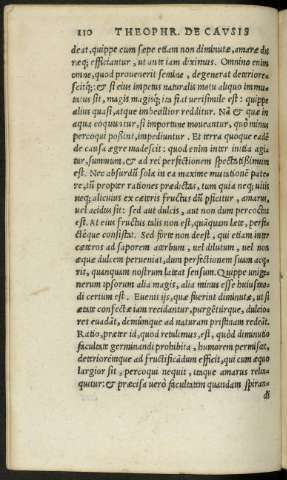 110 THEOPHR. DE CAVSIS
deat, quippe cum sępe etiam non diminutæ, amaræ du
ræq; efficiantur, ut ante iam diximus. Omnino enim
omne, quod prouenerit semine, degenerat deteriore
scitq́;: & si eius impetus naturalis metu aliquo immu-
tatus sit, magis magisq́; ita fiat uerisimile est: quippe
alius quasi, atque imbecillior redditur. Nā & quæ in
aqua coquuntur, si importune moueantur, quò minus
percoqui possint, impediuntur. Et terra quoque eadē
de causa ægre madescit: quod enim inter initia agi-
tur, summum, & ad rei perfectionem spectatissimum
est. Nec absurdū sola in ea maxime mutationē pate-
re, iū propter rationes prædictas, tum quia neq; uitis
neq; alicuius ex cæteris fructus dū pficitur, amarus,
uel acidus sit: sed aut dulcis, aut non dum percoctus
est. At eius fructus talis non est, quāquam læte, perfe-
ctéque consistat. Sed forte non deest, qui etiam inter
cæteros ad saporem acerbum, uel dilutum, uel non
æquæ dulcem perueniat, dum perfectionem suam acq
rit, quanquam nostrum lateat sensum. Quippe unige-
nerum ipsorum alia magis, alia minus esse huiusmo-
di certum est. Euenit ijs, quæ fuerint diminutæ, ut si
ætate confectæ iam recidantur, purgēturque, dulcio-
res euadāt, demúmque ad naturam pristinam redeāt.
Ratio, præter id, quod retulimus, est, quòd diminutio
facultate germinandi prohibita, humorem permiscat,
deterioremque ad fructificādum efficit, qui cum æquo
largior sit, percoqui nequit, itaque amarus relin-
quitur: & præcisa uerò facultatem quandam spiran-
di